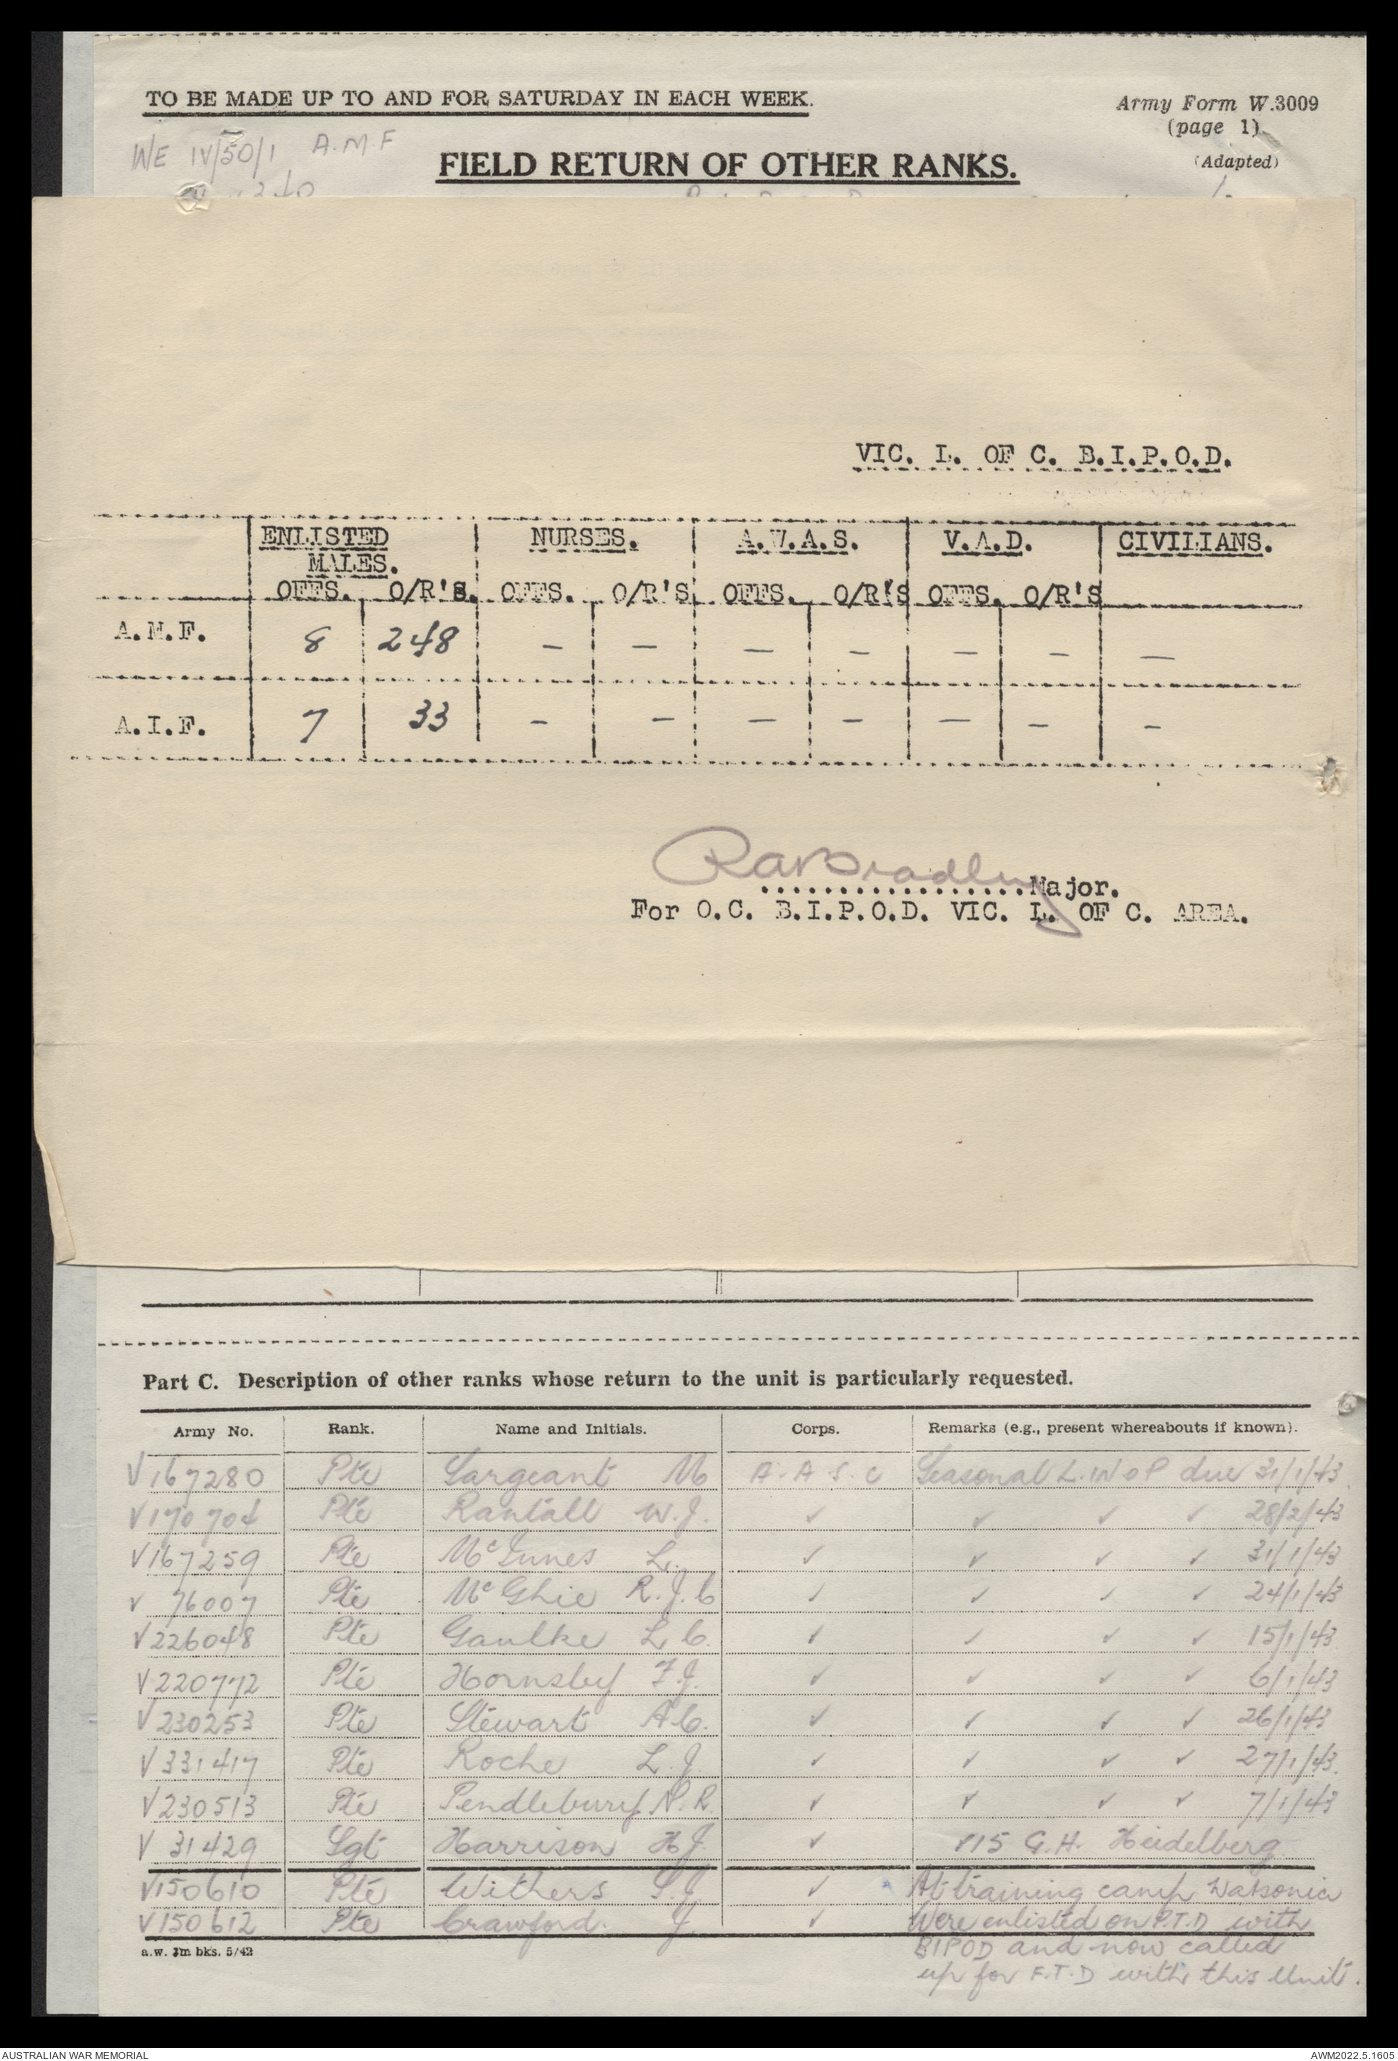 TO BE MADE UP TO AND FOR SATURDAY IN EACH WEEK.
Army Form W.3009
(page 1).
(Adapted)
WE IV/50/1 A.M.F
FIELD RETURN OF OTHER RANKS.
VIC. L. OF C. B.I.P.O.D.
ENLISTED MALES. NURSES. A.W.A.S. V.A.D. CIVILIANS.
OFFS. O/R'S. OFFS. O/R'S OFFS. O/R'S OFFS. O/R'S
A.M.F. 8 248 — — — — — — —
A.I.F. 7 33 — — — — — — —
RABradley
..................Major.
For O.C. B.I.P.O.D. VIC. L. OF C. AREA.
Part C. Description of other ranks whose return to the unit is particularly requested.
Army No. Rank. Name and Initials. Corps. Remarks (e.g., present whereabouts if known).
V167280 Pte Sargeant M A.A.S.C Seasonal L.W.O.P due 31/1/43
V170704 Pte Rantall W.J. ✓ ✓ ✓ ✓ 28/2/43
V167259 Pte McInnes L. ✓ ✓ ✓ ✓ 31/1/43
V 76007 Pte McGhie R.J.C ✓ ✓ ✓ ✓ 24/1/43
V226048 Pte Gaulke L C. ✓ ✓ ✓ ✓ 15/1/43
V220772 Pte Hornsby F.J. ✓ ✓ ✓ ✓ 6/1/43
V230253 Pte Stewart A C. ✓ ✓ ✓ ✓ 26/1/43
V331417 Pte Roche L.J. ✓ ✓ ✓ ✓ 27/1/43.
V230513 Pte Pendlebury N.R. ✓ ✓ ✓ ✓ 7/1/43
V 31429 Sgt Harrison H J. ✓ 115 G.H. Heidelberg
V150610 Pte Withers S.J. ✓ At training camp Watsonia
V150612 Pte Crawford. J. ✓ Were enlisted on P.T.D with
BIPOD and now called
up for F.T.D with this Unit.
a.w. 1m bks. 5/42
AUSTRALIAN WAR MEMORIAL
AWM2022.5.1605